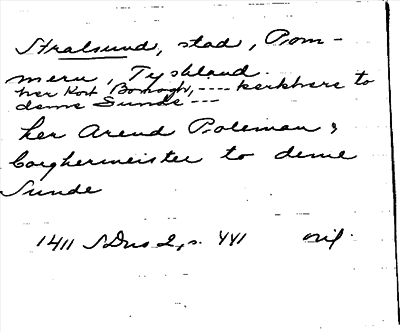 Stralsund, stad, Pom-
mern, Tyskland.
her Kort Bonogh, ---- kerkhere to
deme Sunde ---
her Arend Poleman,
borghermeister to deme
Sunde
1411 SDns 2, s. 441 orig.